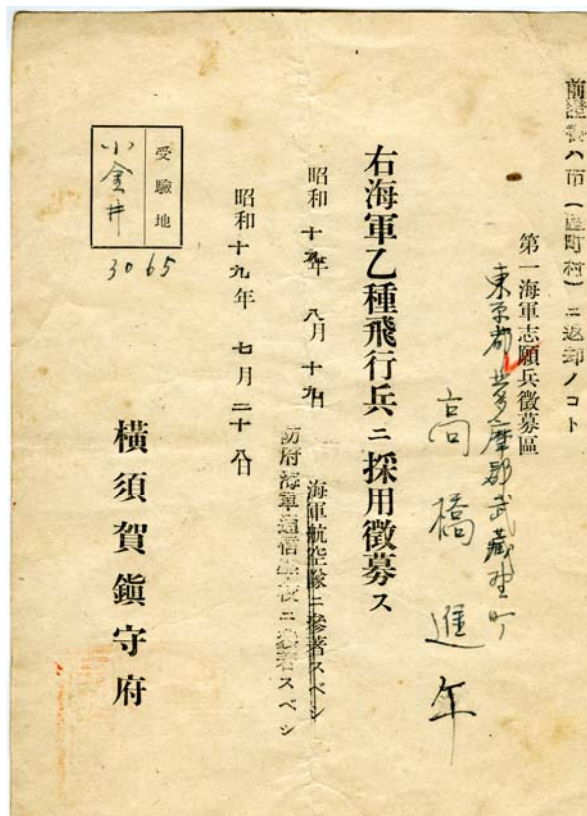 前證書ハ市(區町村)ニ返却ノコト
第一海軍志願兵徴募區
東京都北多摩郡武藏野町
高橋進午
右海軍乙種飛行兵ニ採用徴募ス
昭和十九年八月十九日
海軍航空隊ニ參著スベシ
防府海軍通信學校ニ參著スベシ
昭和十九年七月二十八日
橫須賀鎭守府
受驗地
小金井
3065